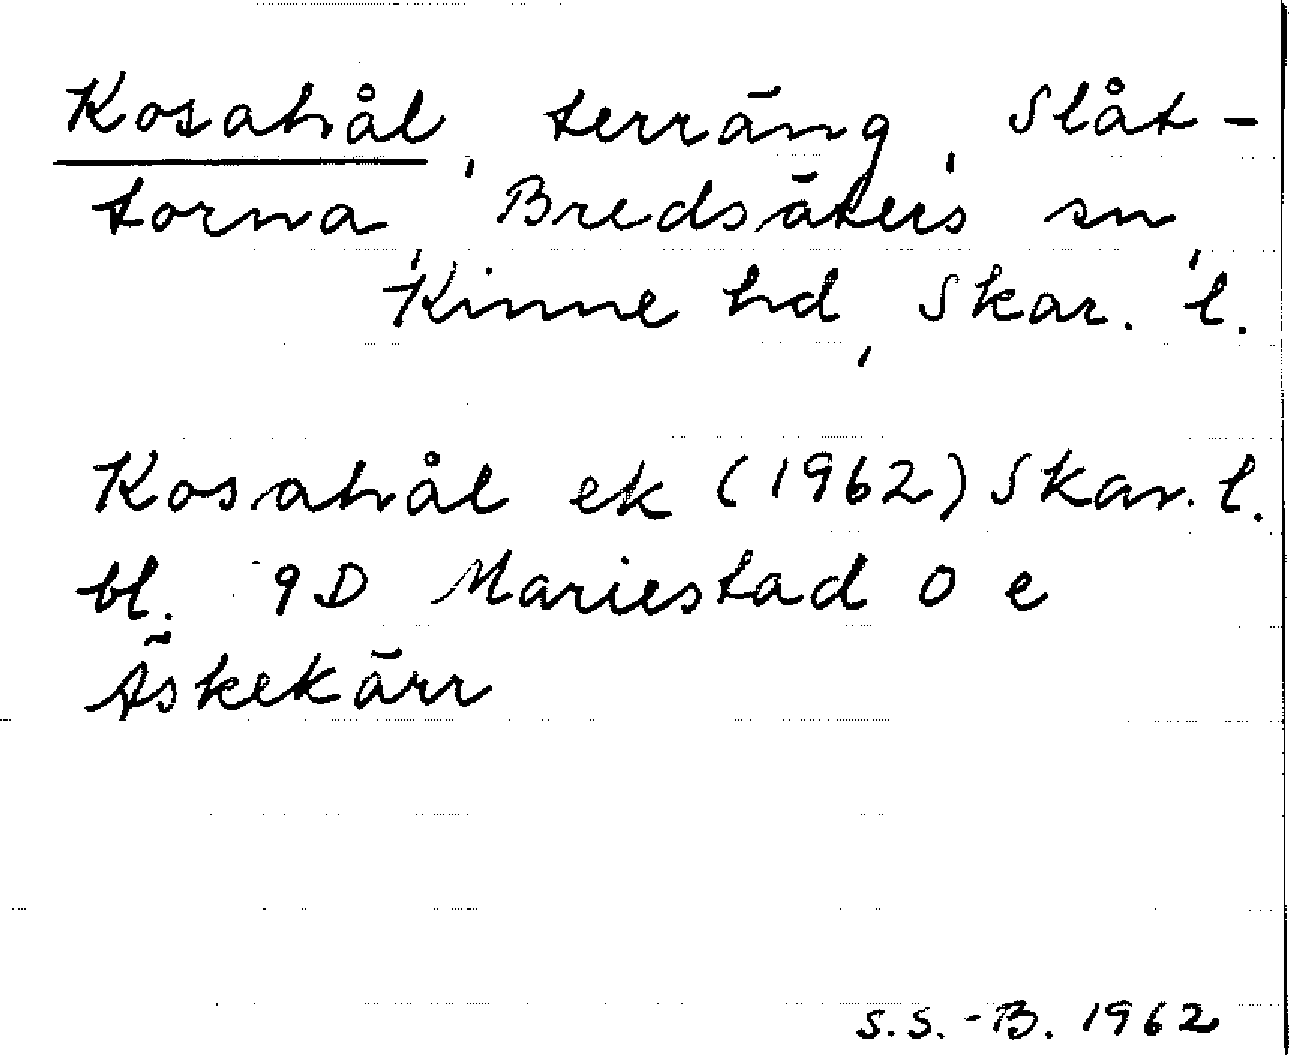 Kosahål, terräng, Slåt-
torna, Bredsäters sn,
Kinne hd, Skar. l.
Kosahål ek (1962) Skar. l.
bl. 9D Mariestad O e
Äskekärr
S.S.-B. 1962